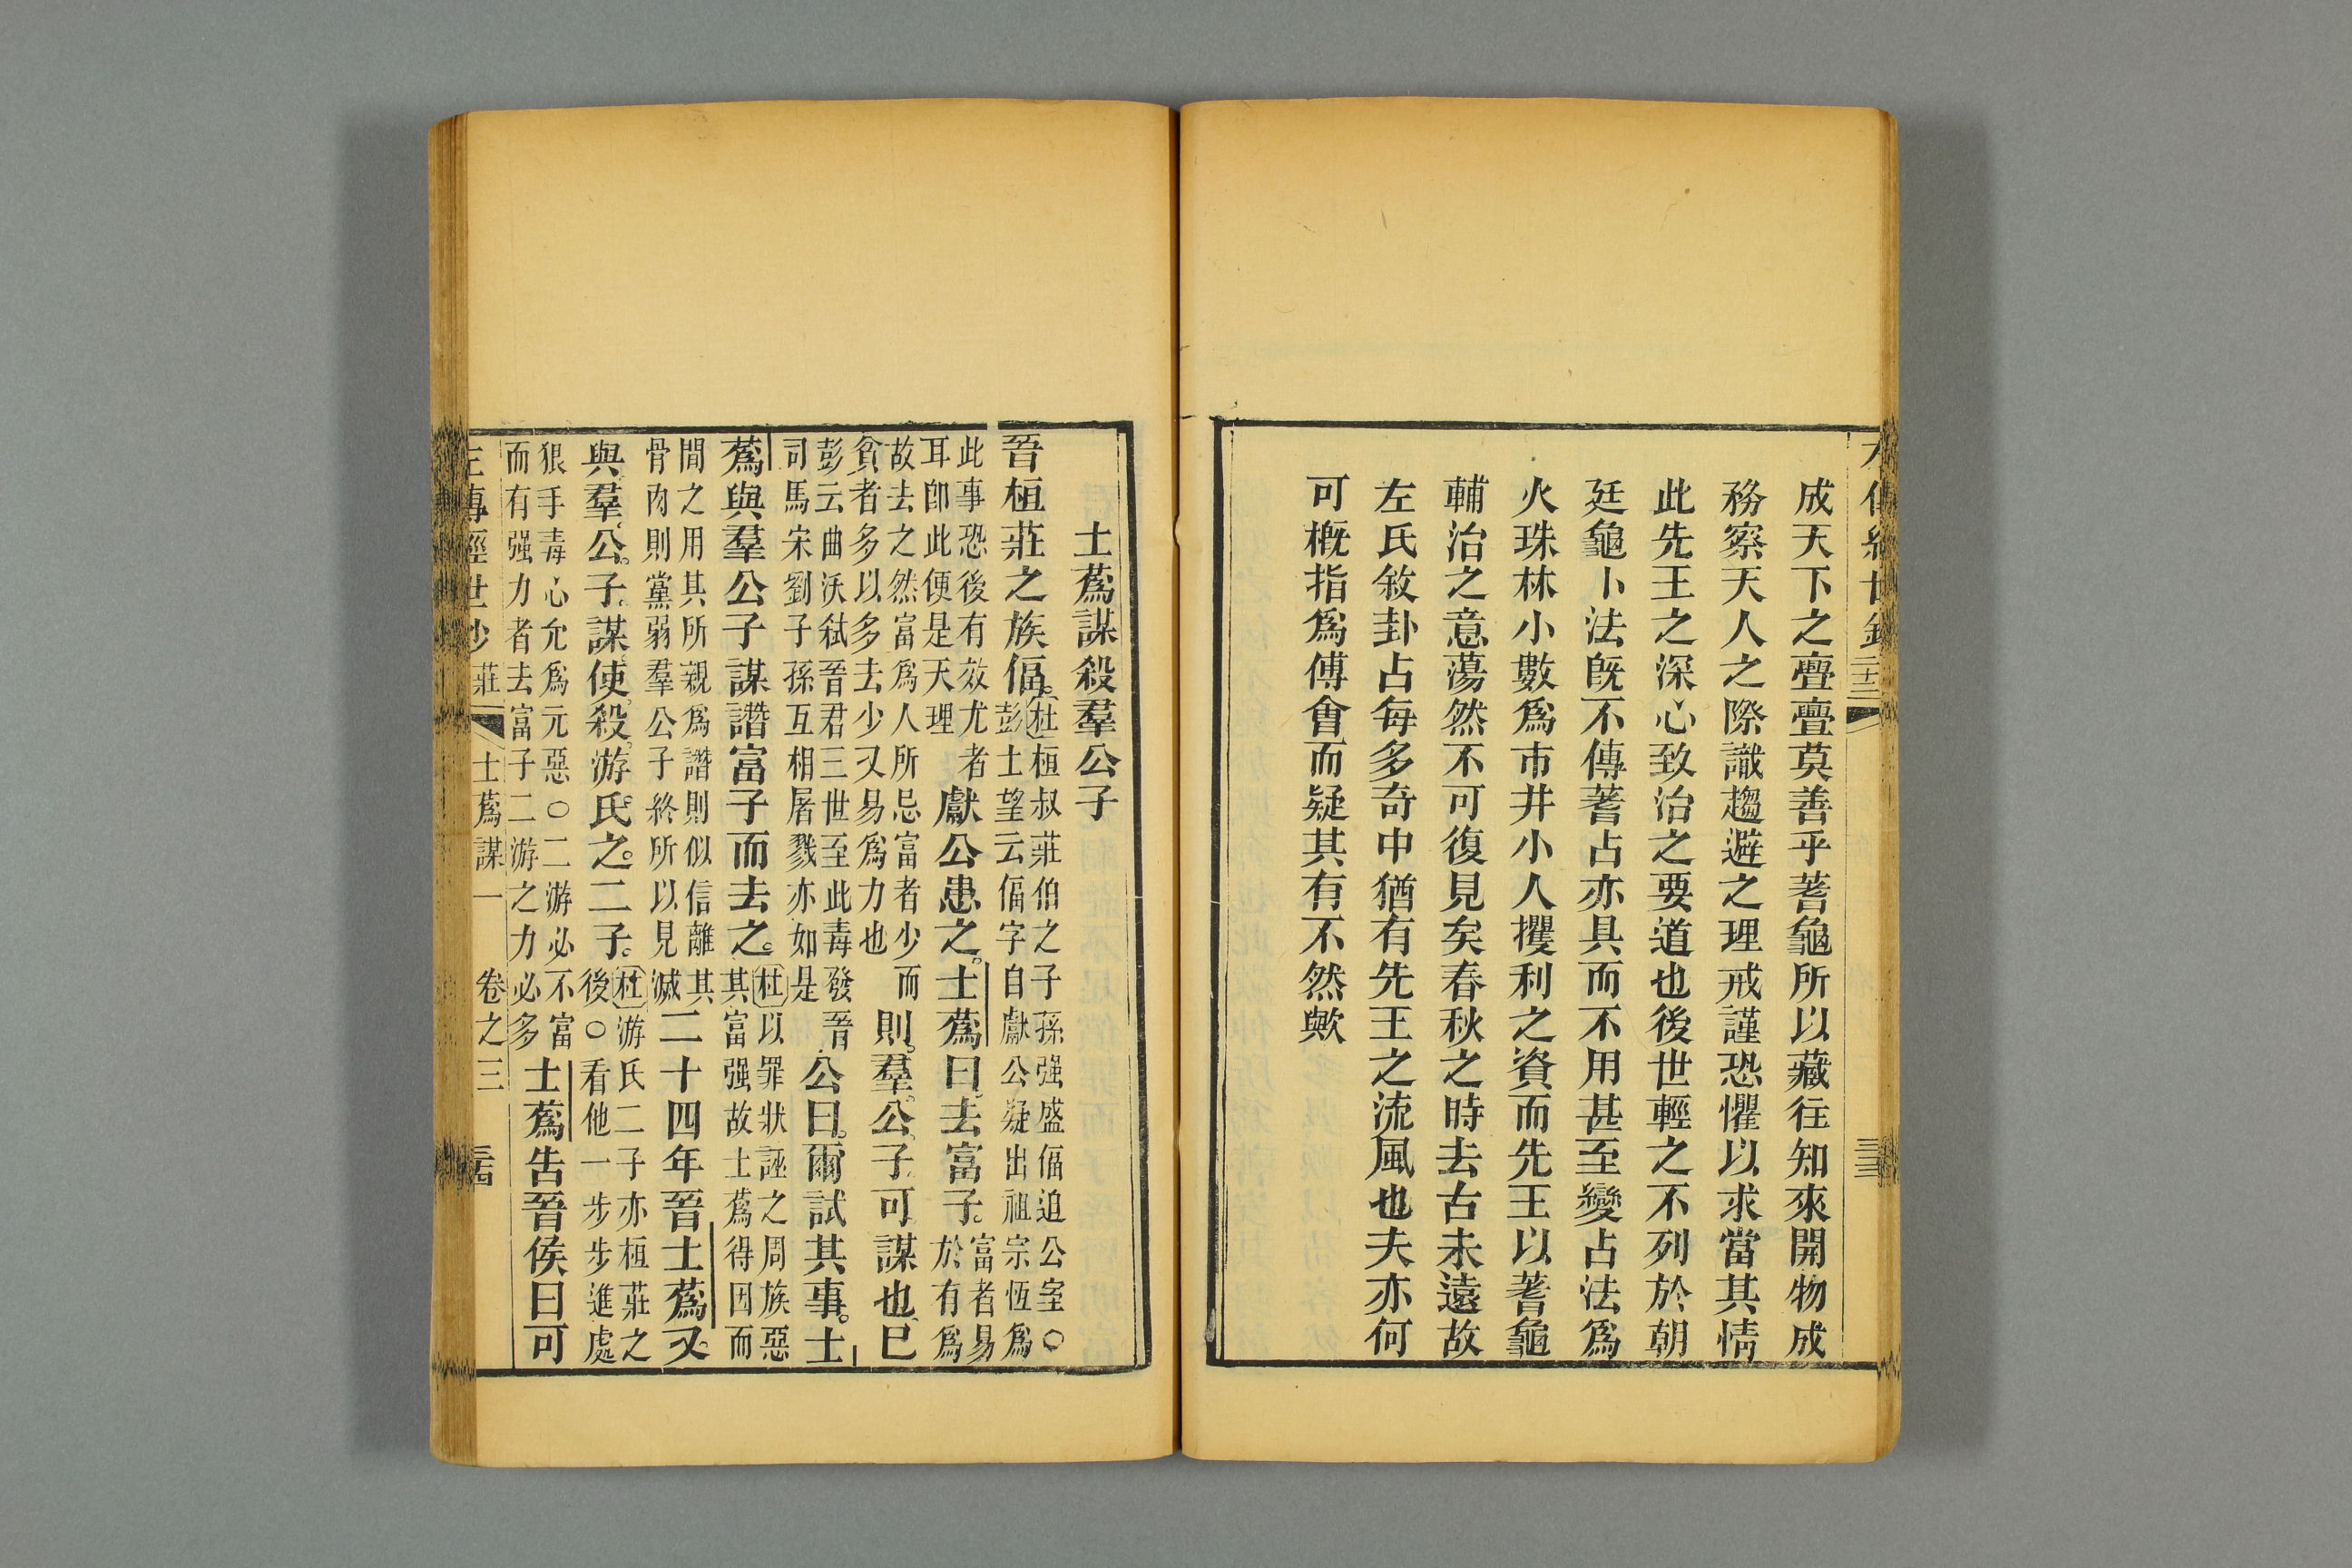 成天下之亹亹莫善乎蓍龜所以藏往知來開物成
務察天人之際識趨避之理戒謹恐懼以求當其情
此先王之深心致治之要道也後世輕之不列於朝
廷龜卜法旣不傳蓍占亦具而不用甚至變占法爲
火珠林小數爲市井小人攫利之資而先王以蓍龜
輔治之意蕩然不可復見矣春秋之時去古未遠故
左氏敘卦占每多奇中猶有先王之流風也夫亦何
可槪指爲傅會而疑其有不然歟
士蔿謀殺羣公子
晉桓莊之族偪。
杜桓叔莊伯之子孫强盛偪迫公室〇
彭士望云偪字自獻公疑出祖宗恆爲
此事恐後有效尤者
耳卽此便是天理
獻公患之。士蔿曰去富子。
富者易
於有爲
故去之然富爲人所忌富者少而
貧者多以多去少又易爲力也
則羣公子可謀也巳
彭云曲沃弒晉君三世至此毒發晉
司馬宋劉子孫互相屠戮亦如是
公曰。爾試其事。士
蔿與羣公子謀譖富子而去之。
杜以罪狀誣之周族惡
其富强故士蔿得因而
閒之用其所親爲譖則似信離其
骨肉則黨弱羣公子終所以見滅
二十四年晉士蔿又。
與羣公。子。謀。使殺。游氏。之。二子。
杜游氏二子亦桓莊之
後〇看他一步步進處
狠手毒心允爲元惡〇二游必不富
而有强力者去富子二游之力必多
士蔿告晉侯曰可
莊 士蔿謀一 卷之三